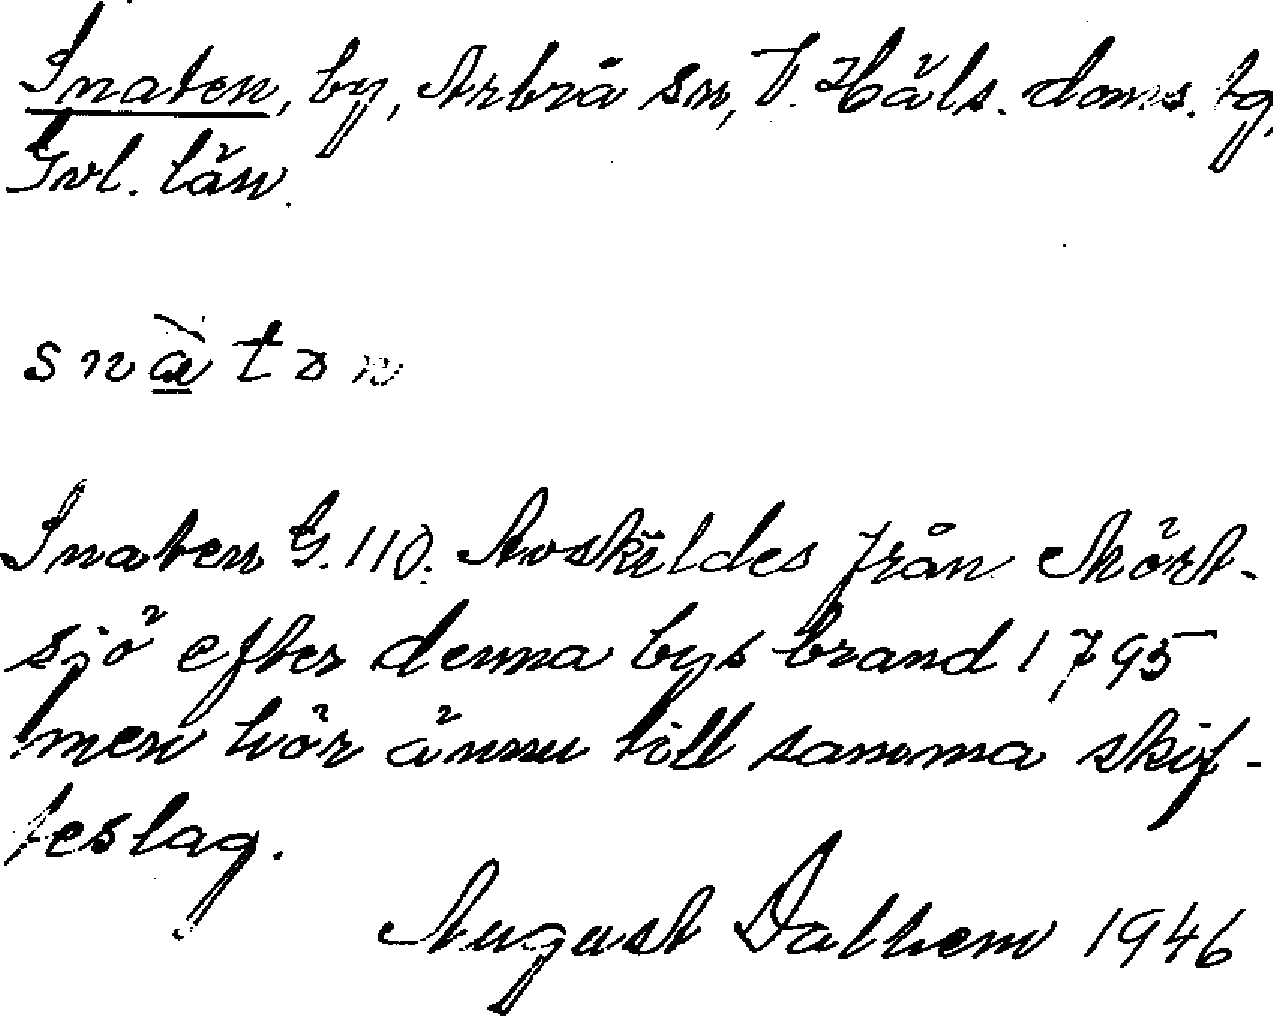 Snaten, by, Arbrå sn, V. Häls. doms. tg,
Gvl. län.
snàtən
Snaten G. 110. Avskildes från Mört-
sjö efter denna bys brand 1795
men hör ännu till samma skif-
teslag.
August Dalhem 1946